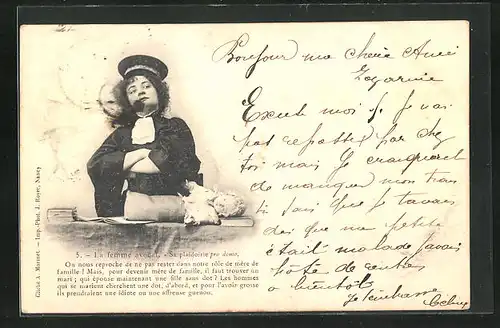 Cliché A. Mentret. — Imp.-Phot. J. Royer, Nancy
5. — La femme avocat. - Sa plaidoirie pro domo,
On nous reproche de ne pas rester dans notre rôle de mère de
famille ! Mais, pour devenir mère de famille, il faut trouver un
mari ; qui épouse maintenant une fille sans dot ? Les hommes
qui se marient cherchent une dot, d'abord, et pour l'avoir grosse
ils prendraient une idiote ou une affreuse guenon.
Bonjour ma chère Amie
Excuse moi si je n'ai
pas repassée par chez
toi mais je craignait
de manquer mon train
tu sais que je t'avais
dit que ma petite
était malade j'avais
hâte de rentrer
a bientôt
Je t'embrasse